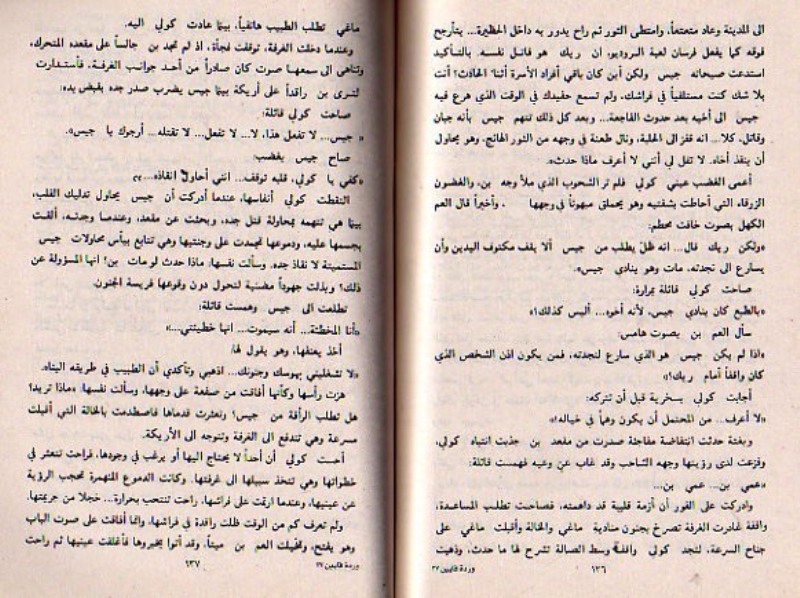 الى المدينة وعاد متمتعاً، وامتطى الثور ثم راح يدور به داخل الحظيرة... يتأرجح
فوقه كما يفعل فرسان لعبة الروديو، ان ريك هو قاتل نفسه. بالتأكيد
استدعت صيحاته جيس ولكن أين كان باقي أفراد الأسرة أثناء الحادث؟ أنت
بلا شك كنت مستلقياً في فراشك. ولم تسمع حفيدك في الوقت الذي هرع فيه
جيس الى أخيه بعد حدوث الفاجعة... وبعد كل ذلك تتهم جيس بأنه جبان
وقاتل، كلا... انه قفز الى الحلبة، ونال طعنة في وجهه من الثور الهائج، وهو يحاول
أن ينقذ أخاه. لا تقل لي أنني لا أعرف ماذا حدث».
أعمى الغضب عيني كولي فلم تر الشحوب الذي ملأ وجه بن، والغضون
الزرقاء التي أحاطت بشفتيه وهو يحملق مبهوتاً في وجهها. وأخيراً قال العم
الكهل بصوت خافت محطم:
«ولكن ريك قال... انه ظل يطلب من جيس ألا يقف مكتوف اليدين وأن
يسارع الى نجدته، مات وهو ينادي جيس».
صاحت كولي قائلة بمرارة:
«بالطبع كان ينادي جيس، لأنه أخوه... أليس كذلك؟»
سأل العم بن بصوت هامس:
«اذا لم يكن جيس هو الذي سارع لنجدته، فمن يكون اذن الشخص الذي
كان واقفاً أمام ريك؟»
أجابت كولي بسخرية قبل أن تتركه:
«لا أعرف... من المحتمل أن يكون وهماً في خياله!»
وبغتة حدثت انتفاضة مفاجئة صدرت من مقعد بن جذبت انتباه كولي،
وفزعت لدى رؤيتها وجهه الشاحب وقد غاب عن وعيه فهمست قائلة:
«عمي بن... عمي بن...
وادركت على الفور أن أزمة قلبية قد داهمته، فصاحت تطلب المساعدة،
واقفة غادرت الغرفة تصرخ بجنون منادية ماغي والخالة وأقبلت ماغي على
جناح السرعة، لتجد كولي واقفة وسط الصالة تشرح لها ما حدث، وذهبت
١٣٦
وردة قايين ٢٧
ماغي تطلب الطبيب هاتفياً، بينما عادت كولي اليه.
وعندما دخلت الغرفة، توقفت فجأة، اذ لم تجد بن جالساً على مقعده المتحرك،
وتناهى الى سمعها صوت كان صادراً من أحد جوانب الغرفة. فاستدارت
لترى بن راقداً على أريكة بينما جيس يضرب صدر جده بقبض يده:
صاحت كولي قائلة:
« جيس... لا تفعل هذا، لا... لا تفعل... لا تقتله... أرجوك يا جيس».
صاح جيس بغضب:
«كفي يا كولي، قلبه توقف... انني أحاول انقاذه...»
التقطت كولي أنفاسها، عندما أدركت أن جيس يحاول تدليك القلب،
بينما هي تتهمه بمحاولة قتل جده، وبحثت عن مقعد، وعندما وجدته، ألقت
بجسمها عليه، ودموعها تجمدت على وجنتيها وهي تتابع بيأس محاولات جيس
المستميتة لانقاذ جده. وسألت نفسها: ماذا حدث لو مات بن؟ انها المسؤولة عن
ذلك؟ وبذلت جهوداً مضنية لتحول دون وقوعها فريسة الجنون.
تطلعت الى جيس وهمست قائلة:
«أنا المخطئة... أنه سيموت... انها خطيئتي...»
أخذ يعنفها، وهو يقول لها:
«لا تشغليني بهوسك وجنونك... اذهبي وتأكدي أن الطبيب في طريقه الينا».
هزت رأسها وكأنها أفاقت من صفعة على وجهها، وسألت نفسها: «ماذا تريد؟
هل تطلب الرأفة من جيس؟ وتعثرت قدماها فاصطدمت بالخالة التي أقبلت
مسرعة وهي تندفع الى الغرفة وتتوجه الى الأريكة.
أحست كولي أن أحداً لا يحتاج اليها أو يرغب في وجودها، فراحت تتعثر في
خطواتها وهي تتخذ سبيلها الى غرفتها. وكانت الدموع المنهمرة تحجب الرؤية
عن عينيها، وعندما ارتمت على فراشها، راحت تنتحب بحرارة... خجلا من جريمتها،
ولم تعرف كم من الوقت ظلت راقدة في فراشها، وانما أفاقت على صوت الباب
وهو يفتح، وتخيلت العم بن ميتاً، وقد أتوا يخبروها فأغلقت عينيها ثم راحت
١٣٧
وردة قايين ٢٧